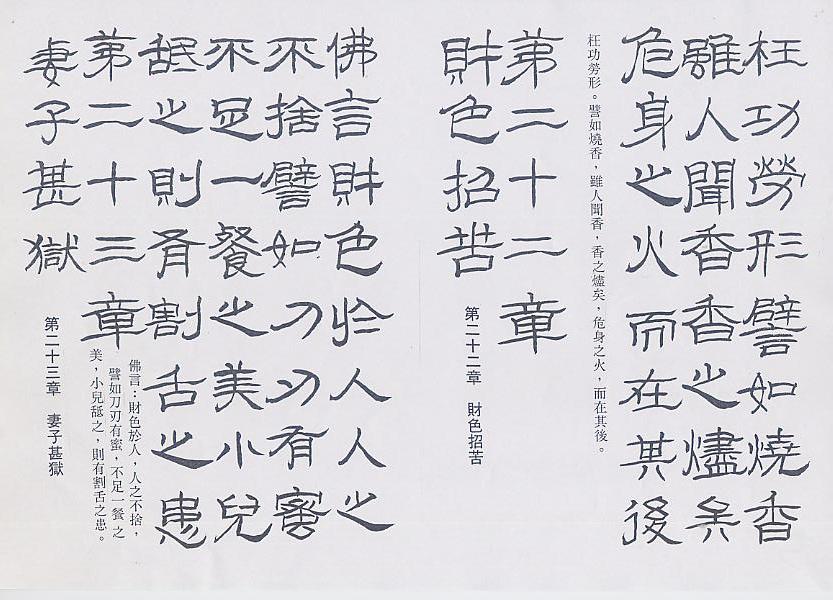 枉功勞形譬如燒香
雖人聞香香之燼矣
危身之火而在其後
枉功勞形。譬如燒香，雖人聞香，香之燼矣，危身之火，而在其後。
第二十二章
財色招苦
第二十二章　財色招苦
佛言財色於人人之
不捨譬如刀刃有蜜
不足一餐之美小兒
舐之則有割舌之患
佛言：財色於人，人之不捨，
譬如刀刃有蜜，不足一餐之
美，小兒舐之，則有割舌之患。
第二十三章
妻子甚獄
第二十三章　妻子甚獄